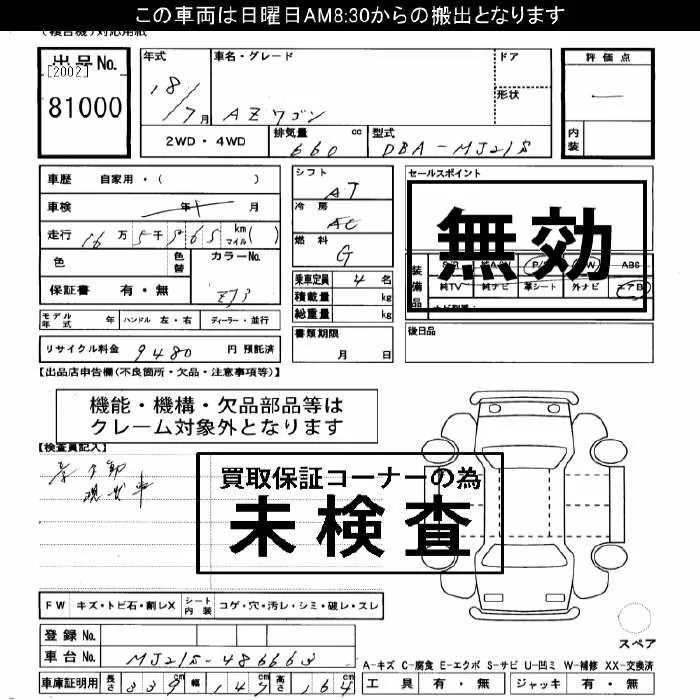 この車両は日曜日AM8:30からの搬出となります
出品No.
[2002]
81000
年式
18/7月
車名・グレード
AZワゴン
ドア
形状
評価点
内装
2WD・4WD
排気量 660 cc
型式 DBA-MJ21S
車歴 自家用・( )
車検 年 月
走行 16万5千565 km( ) マイル
色
色替
カラーNo.
保証書 有・無
ZJ3
シフト AT
冷房 AC
燃料 G
乗車定員 4名
積載量 kg
総重量 kg
書類期限
月 日
セールスポイント
無効
装備品
ABS
純TV 純ナビ 革シート 外ナビ エアB
後日品
モデル年式 年 ハンドル 左・右 ディーラー・並行
リサイクル料金 9480 円 預託済
【出品店申告欄(不良箇所・欠品・注意事項等)】
機能・機構・欠品部品等は
クレーム対象外となります
【検査員記入】
現状車
買取保証コーナーの為
未検査
FW キズ・トビ石・割レX シート内装 コゲ・穴・汚レ・シミ・破レ・スレ
登録No.
車台No. MJ21S-486663
車庫証明用 長さ 339cm 幅 147cm 高さ 164cm
スペア
A-キズ C-腐食 E-エクボ S-サビ U-凹ミ W-補修 XX-交換済
工具 有・無 ジャッキ 有・無